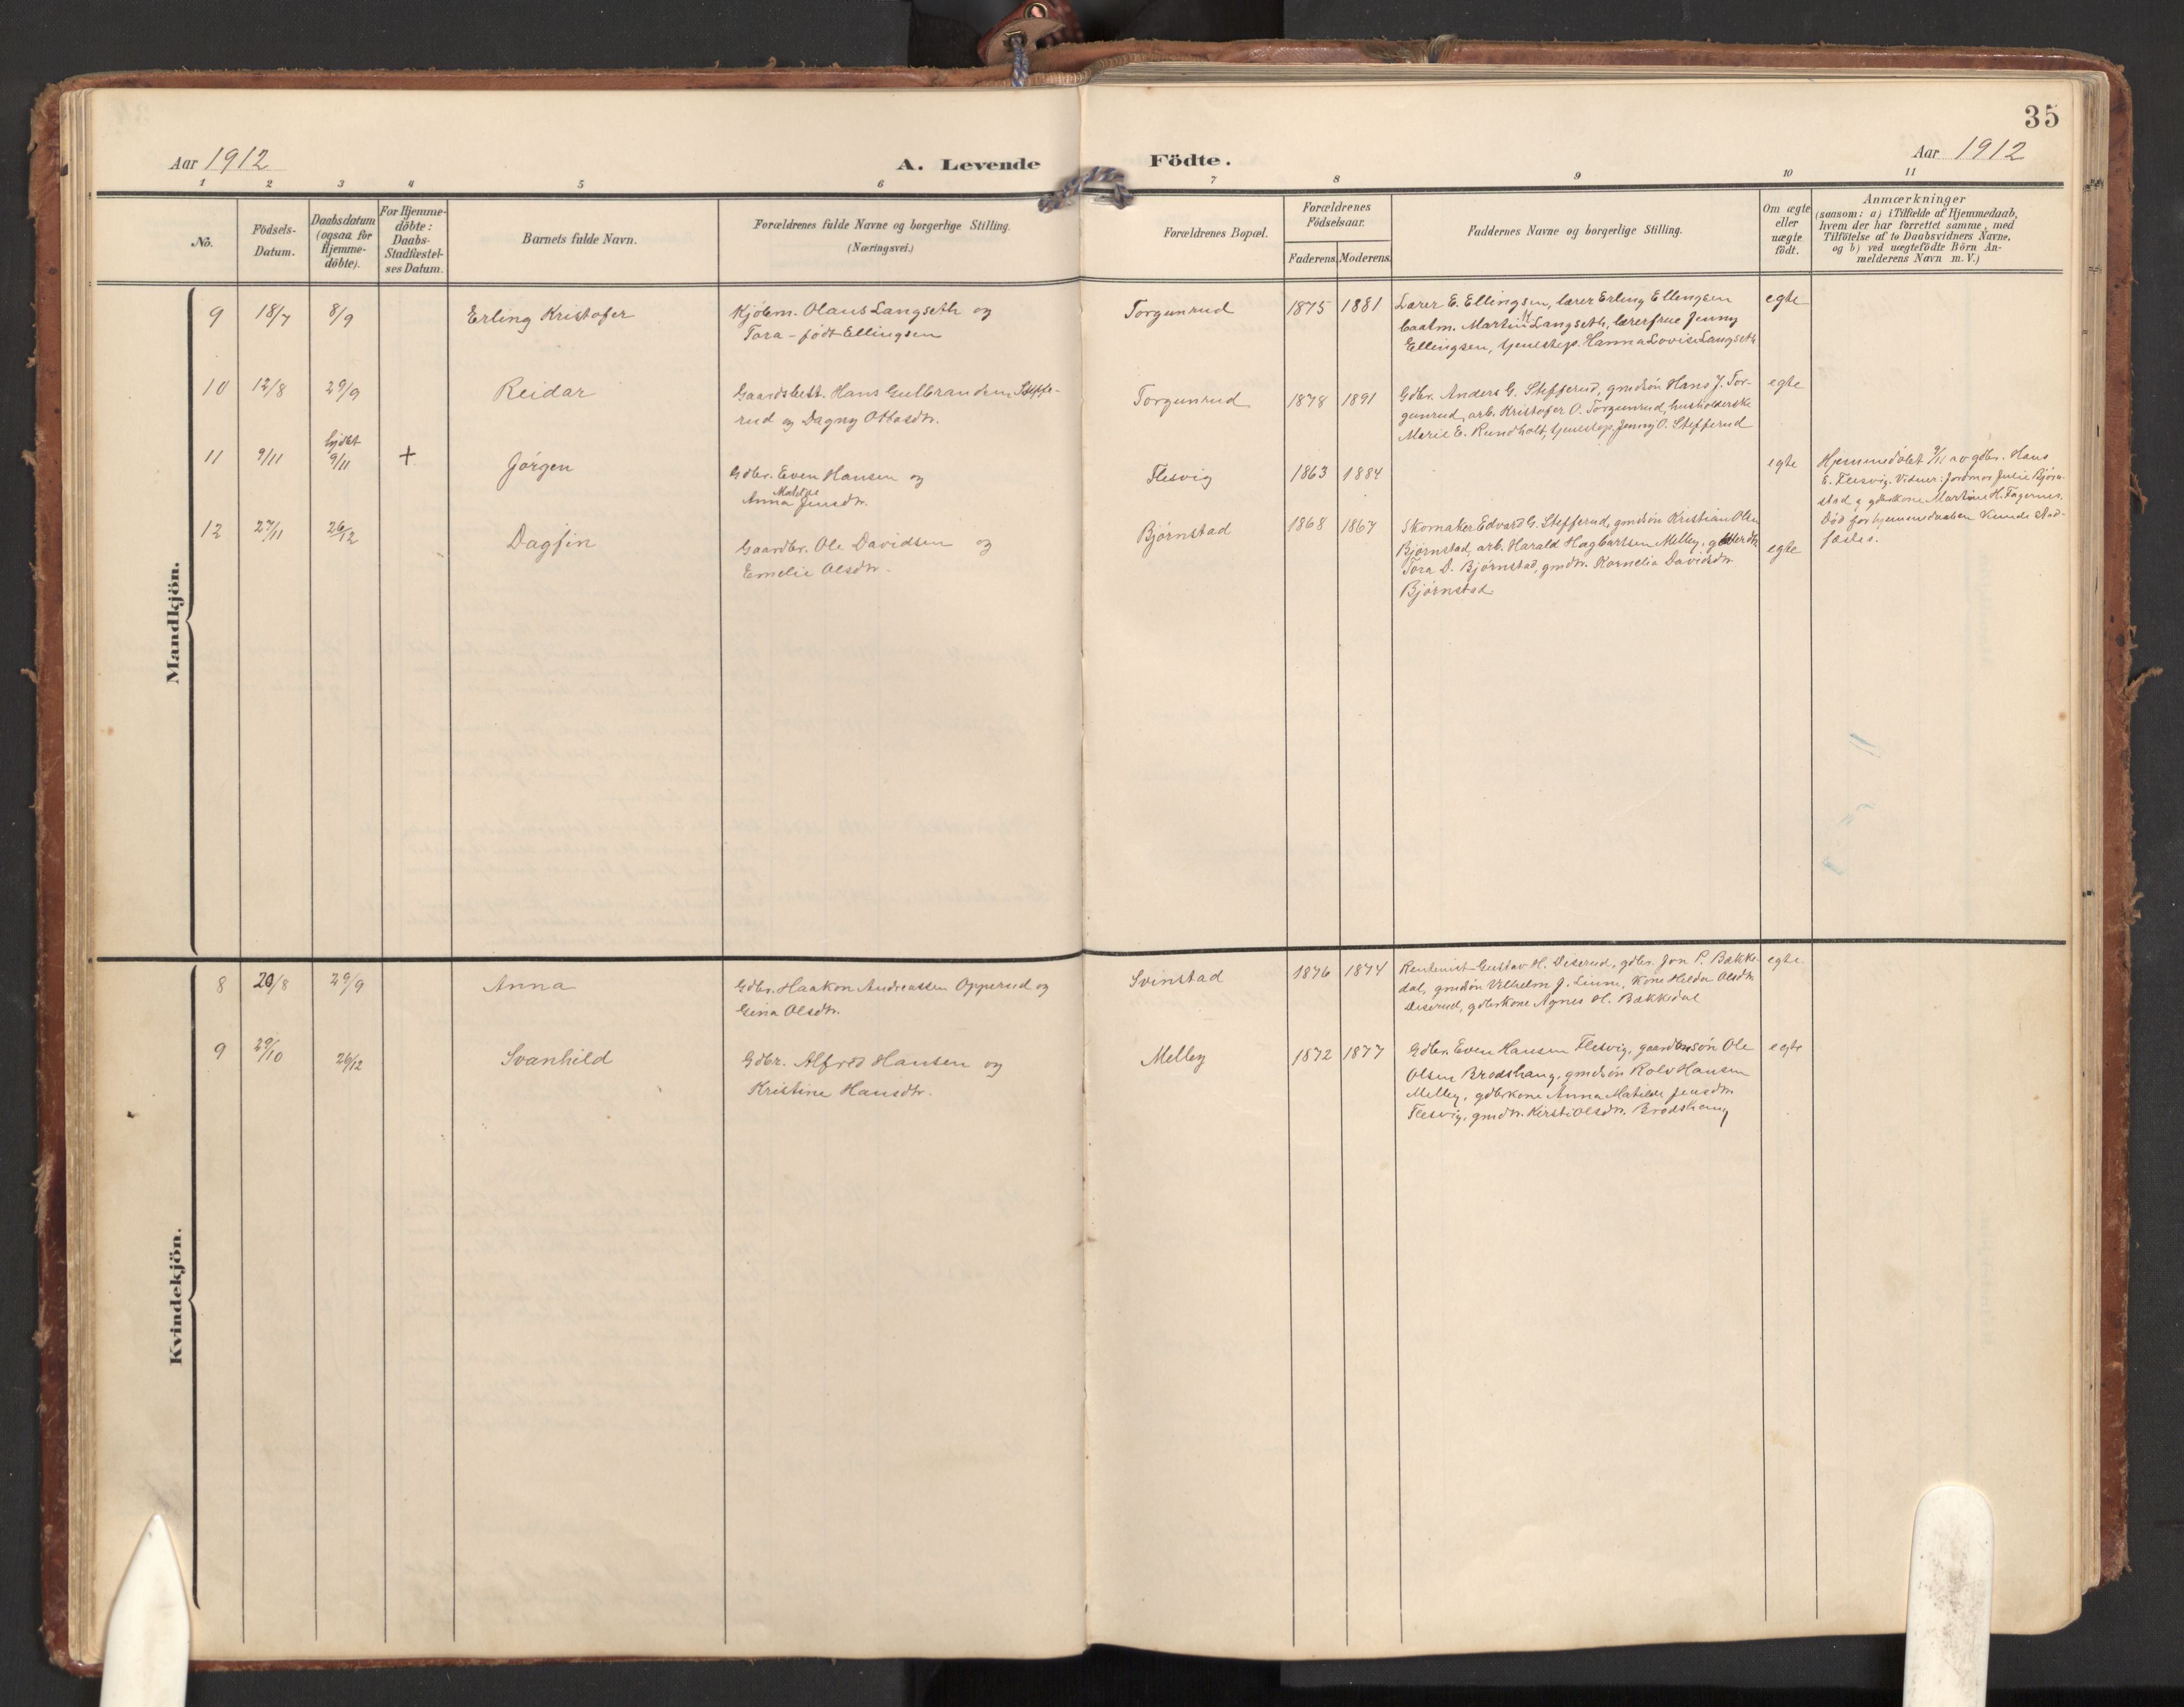 35
Aar 1912
A. Levende
Födte.
Aar 1912
1 2 3 4 5 6 7 8 9 10 11
No.
Födsels-
Datum.
Daabsdatum
(ogsaa for
Hjemme-
döbte).
For Hjemme-
döbte:
Daabs-
Stadfæstel-
ses Datum.
Barnets fulde Navn.
Forældrenes fulde Navne og borgerlige Stilling.
(Næringsvei.)
Forældrenes Bopæl.
Forældrenes
Födselsaar.
Faderens. Moderens.
Faddernes Navne og borgerlige Stilling.
Om ægte
eller
uægte
födt.
Anmærkninger
(saasom: a) i Tilfælde af Hjemmedaab,
hvem der har forrettet samme, med
Tilföielse af to Daabsvidners Navne,
og b) ved uægtefödte Börn An-
melderens Navn m. V.)
Mandkjön.
9 18/7 8/9 Erling Kristofer
Kjöbm. Olaus Langseth og
Tora - født Ellingsen
Torgunrud 1875 1881
Lærer E. Ellingsen, lærer Erling Ellingsen
baatm. Martin K Langseth, lærerfrue Jenny
Ellingsen, tjenestep. Hanna Lovise Langseth
egte
10 12/8 29/9 Reidar
Gaardsbest. Hans Gulbrandsen Steffe-
rud og Dagny Ottosdtr.
Torgunrud 1878 1891
Gdbr. Anders G. Stefferud, gmdsön Hans J. Tor-
gunrud, arb. Kristofer O. Torgunrud, husholderske
Marie E. Rundholt, tjenestep. Jenny O. Stefferud
egte
11 9/11 hjdbt 9/11 + Jörgen
Gdbr. Even Hansen og
Anna Matilde Jensdtr.
Flesvig 1863 1884
egte
Hjemmedöbt 9/11 av gdbr. Hans
E. Flesvig. Vidner: Jordmor Julie Bjørn-
stad og gdbrkone Martine H. Fagernes.
Död før hjemmedaaben kunde stad-
fæstes.
12 27/11 26/12 Dagfin
Gaardbr. Ole Davidsen og
Emelie Olsdtr.
Bjørnstad 1868 1867
Skomaker Edvard G. Stefferud, gmdsön Kristian Olsen
Bjørnstad, arb. Harald Hagbartsen Melby,
Tora D. Bjørnstad, gmdtr. Kornelia Davidsdtr.
Bjørnstad
egte
Kvindekjön.
8 20/8 29/9 Anna
Gdbr. Haakon Andreassen Opperud og
Gina Olsdtr.
Svinstad 1876 1874
Rentenist Gustav H. Diserud, gdbr. Jon P. Bakke-
dal, gmdsön Vilhelm J. Linne, Kone Hilda Olsdtr.
Diserud, gdbrkone Agnes H. Bakkedal
egte
9 29/10 26/12 Svanhild
Gdbr. Alfred Hansen og
Kristine Hansdtr.
Melby 1872 1877
Gdbr. Even Hansen Flesvig, gaardbrsön Ole
Olsen Brodshaug, gmdsön Rolv Hansen
Melby, gdbrkone Anna Matilde Jensdtr.
Flesvig, gmdtr. Kirsti Olsdtr. Brodshaug
egte